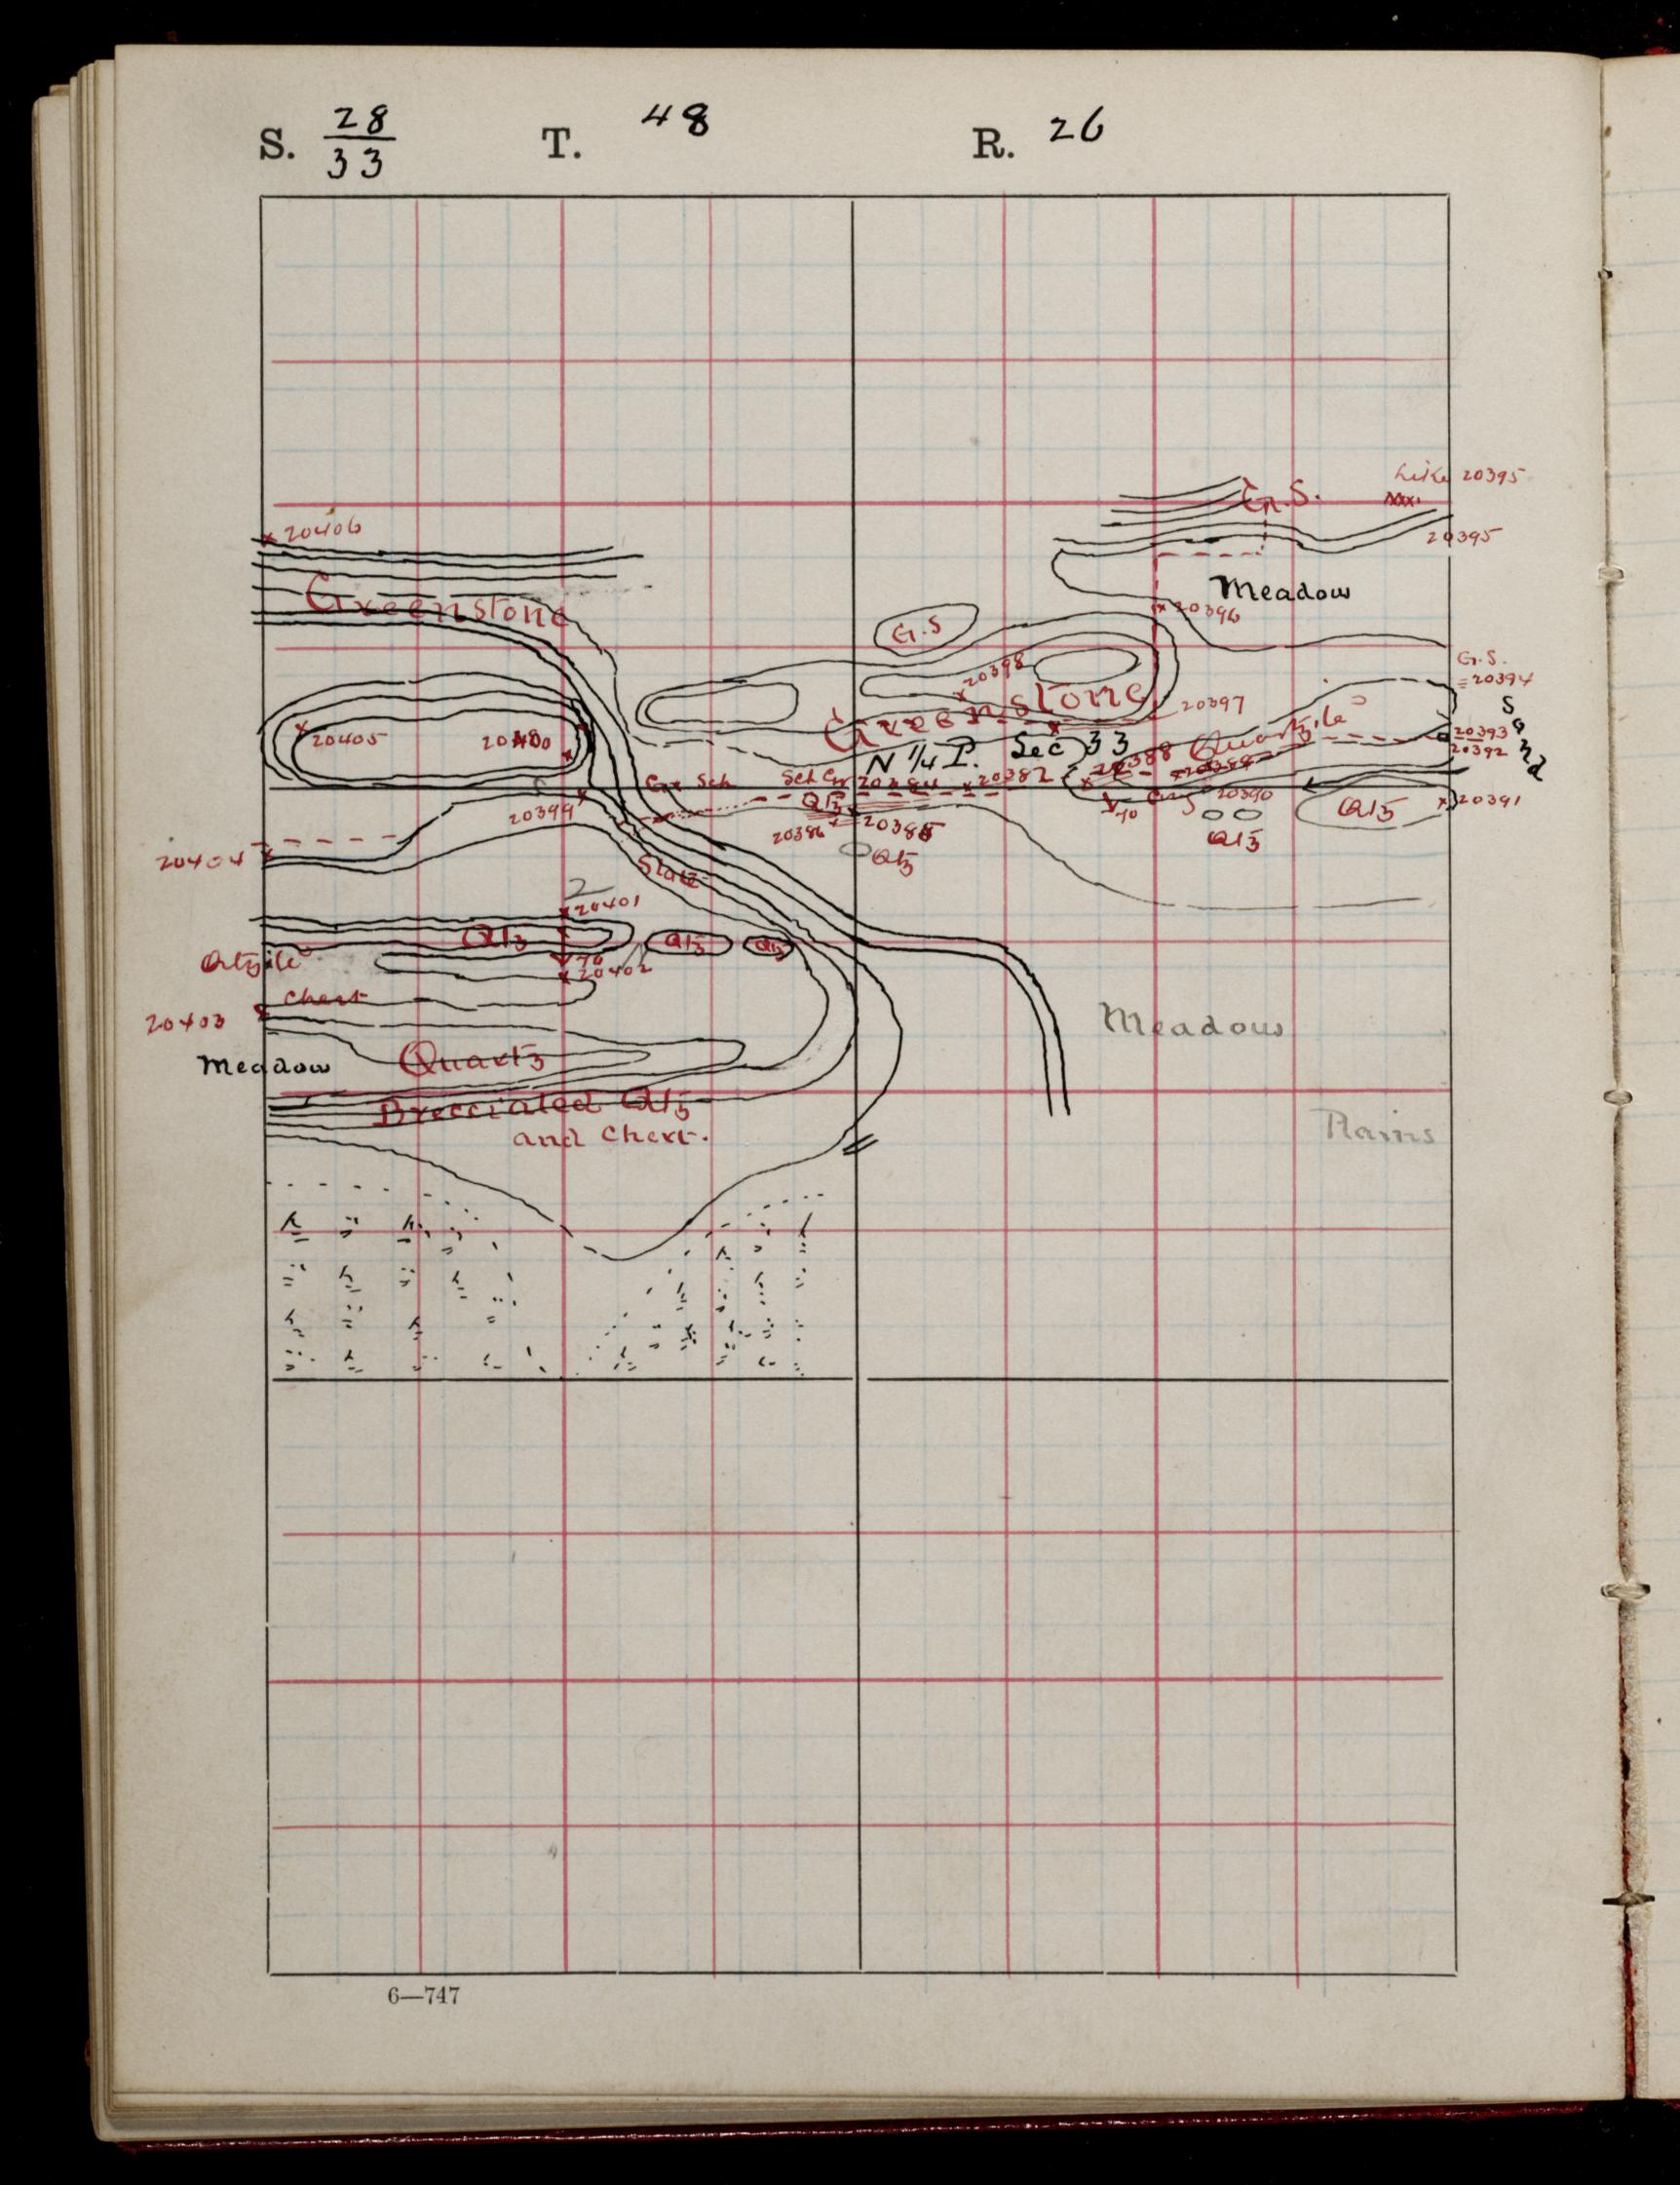 S. 28/33 T. 48 R. 26
Like 20395
G.S.
20395
20406
Meadow
Greenstone
20396
G.S
G.S.
20398
20394
Greenstone
20397
Sand
20405
Quartzite
20393
N 1/4 P. Sec 33
20392
20388
Gr Sch
Sch Gr
20384
20387
20390
20391
Qtz
Qtz
20399
20386
20385
Qtz
20404
Qtz
Slate
20401
Qtz
Qtz
Qtz
Qtzite
70
20402
Chert
20403
Meadow
Meadow
Quartz
Brecciated Qtz
Plains
and Chert.
6—747